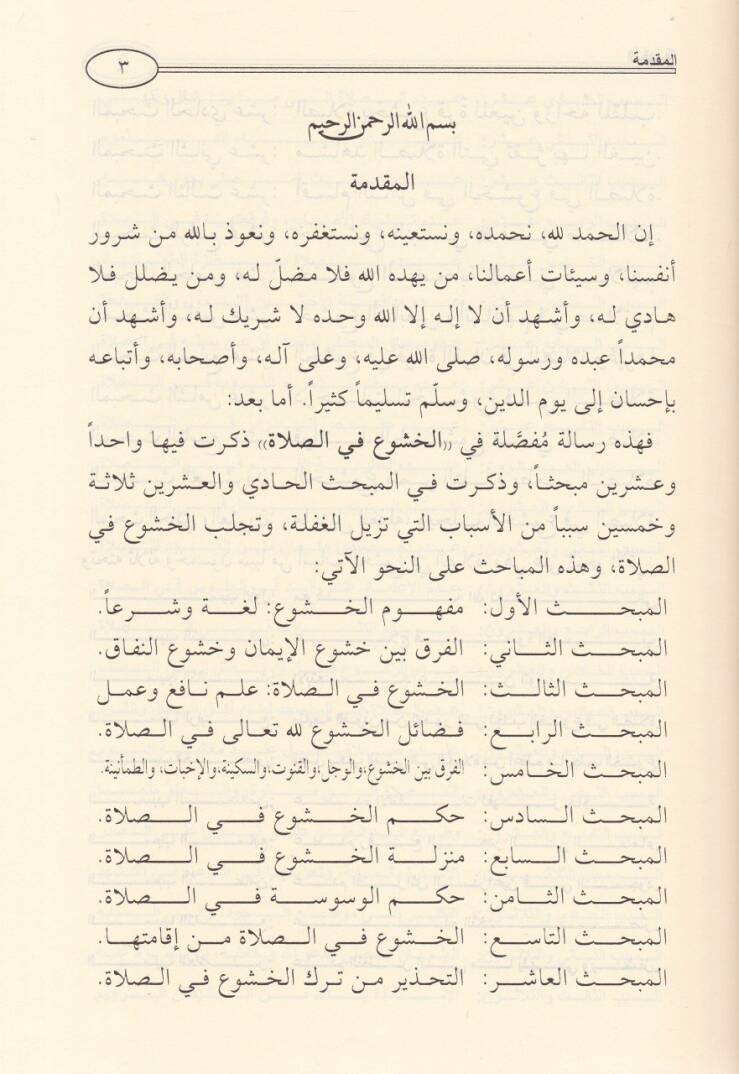 المقدمة
٣
بسم الله الرحمن الرحيم
المقدمة
إن الحمد لله، نحمده، ونستعينه، ونستغفره، ونعوذ بالله من شرور
أنفسنا، وسيئات أعمالنا، من يهده الله فلا مضلّ له، ومن يضلل فلا
هادي له، وأشهد أن لا إله إلا الله وحده لا شريك له، وأشهد أن
محمداً عبده ورسوله، صلى الله عليه، وعلى آله، وأصحابه، وأتباعه
بإحسان إلى يوم الدين، وسلّم تسليماً كثيراً. أما بعد:
فهذه رسالة مُفصَّلة في ((الخشوع في الصلاة)) ذكرت فيها واحداً
وعشرين مبحثاً، وذكرت في المبحث الحادي والعشرين ثلاثة
وخمسين سبباً من الأسباب التي تزيل الغفلة، وتجلب الخشوع في
الصلاة، وهذه المباحث على النحو الآتي:
المبحث الأول: مفهوم الخشوع: لغة وشرعاً.
المبحث الثاني: الفرق بين خشوع الإيمان وخشوع النفاق.
المبحث الثالث: الخشوع في الصلاة: علم نافع وعمل
المبحث الرابع: فضائل الخشوع لله تعالى في الصلاة.
المبحث الخامس: الفرق بين الخشوع، والوجل، والقنوت، والسكينة، والإخبات، والطمأنينة.
المبحث السادس: حكم الخشوع في الصلاة.
المبحث السابع: منزلة الخشوع في الصلاة.
المبحث الثامن: حكم الوسوسة في الصلاة.
المبحث التاسع: الخشوع في الصلاة من إقامتها.
المبحث العاشر: التحذير من ترك الخشوع في الصلاة.